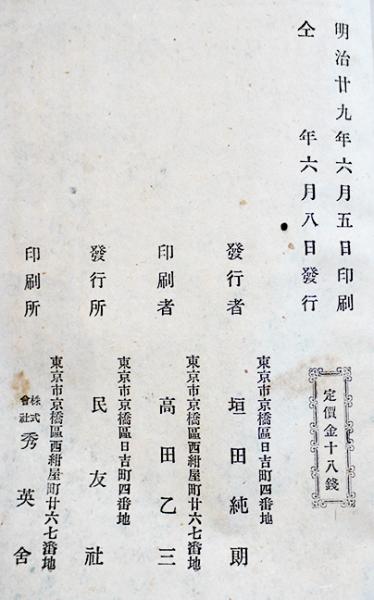 明治廿九年六月五日印刷
仝年六月八日發行
定價金十八錢
發行者
東京市京橋區日吉町四番地
垣田純朗
印刷者
東京市京橋區西紺屋町廿六七番地
高田乙三
發行所
東京市京橋區日吉町四番地
民友社
印刷所
東京市京橋區西紺屋町廿六七番地
株式會社秀英舍